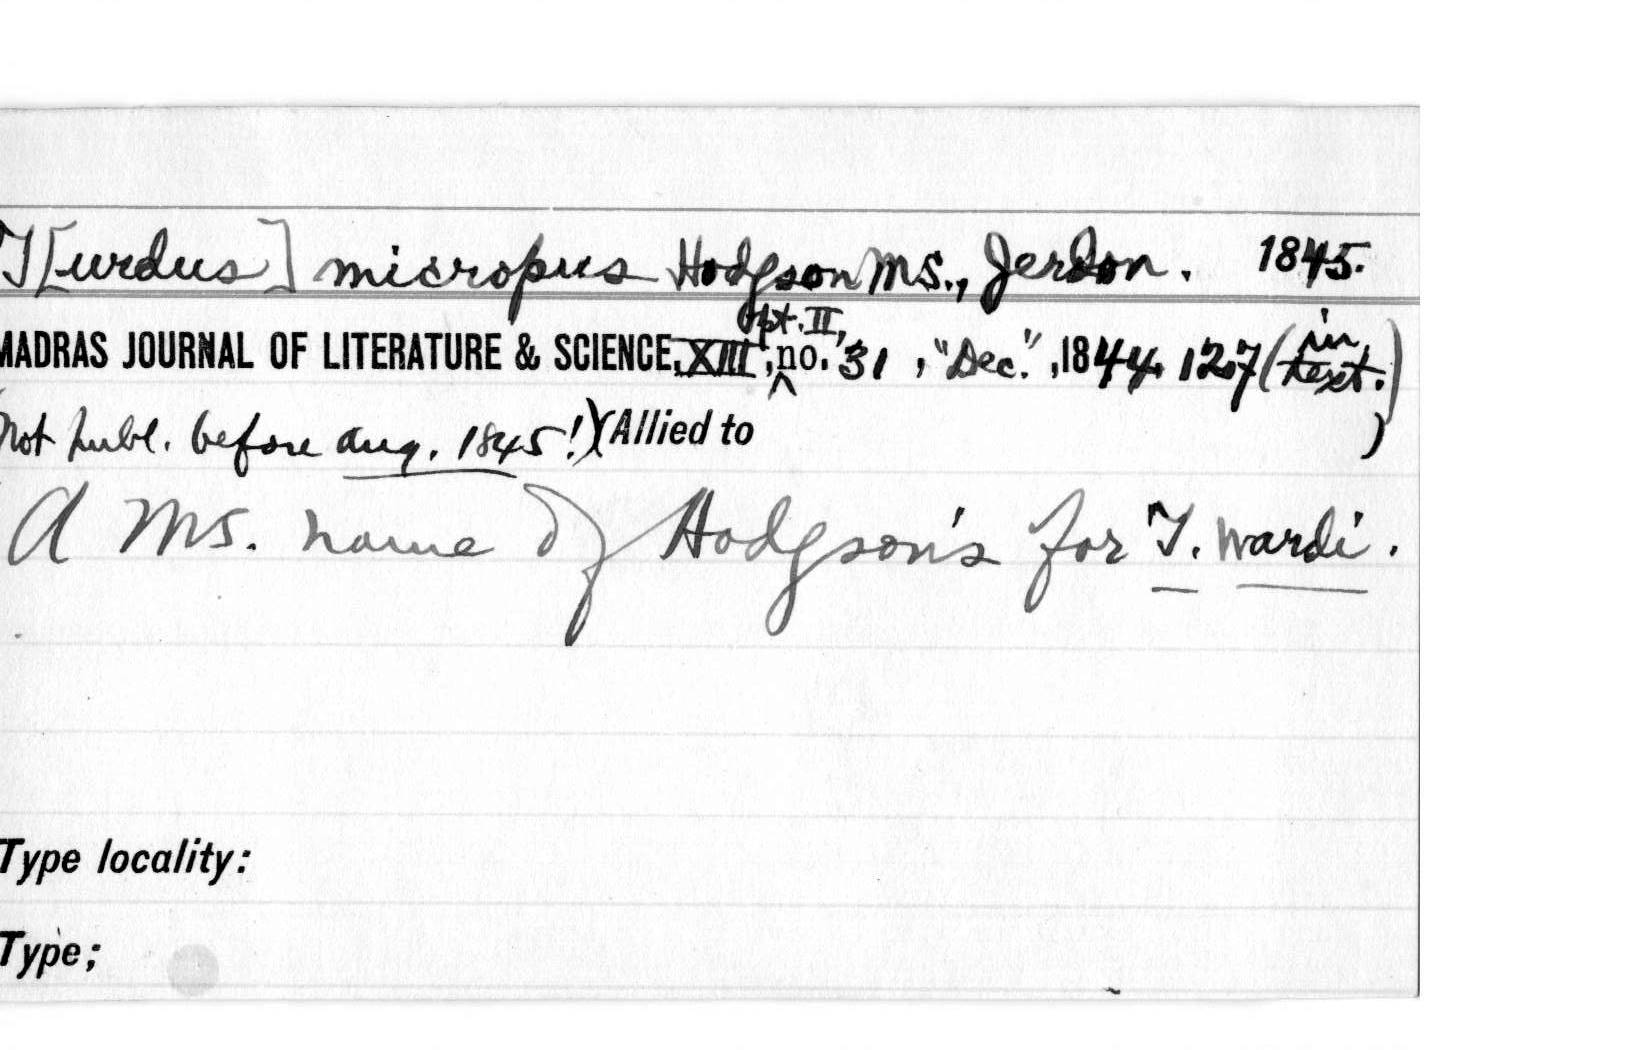 T[urdus] micropus Hodgson MS., Jerdon. 1845.
MADRAS JOURNAL OF LITERATURE & SCIENCE, XIII, pt. II, no. 31, "Dec.", 1844, 127 (in text.)
Not publ. before Aug. 1845!) (Allied to )
A MS. name of Hodgson's for T. wardi.
Type locality:
Type;